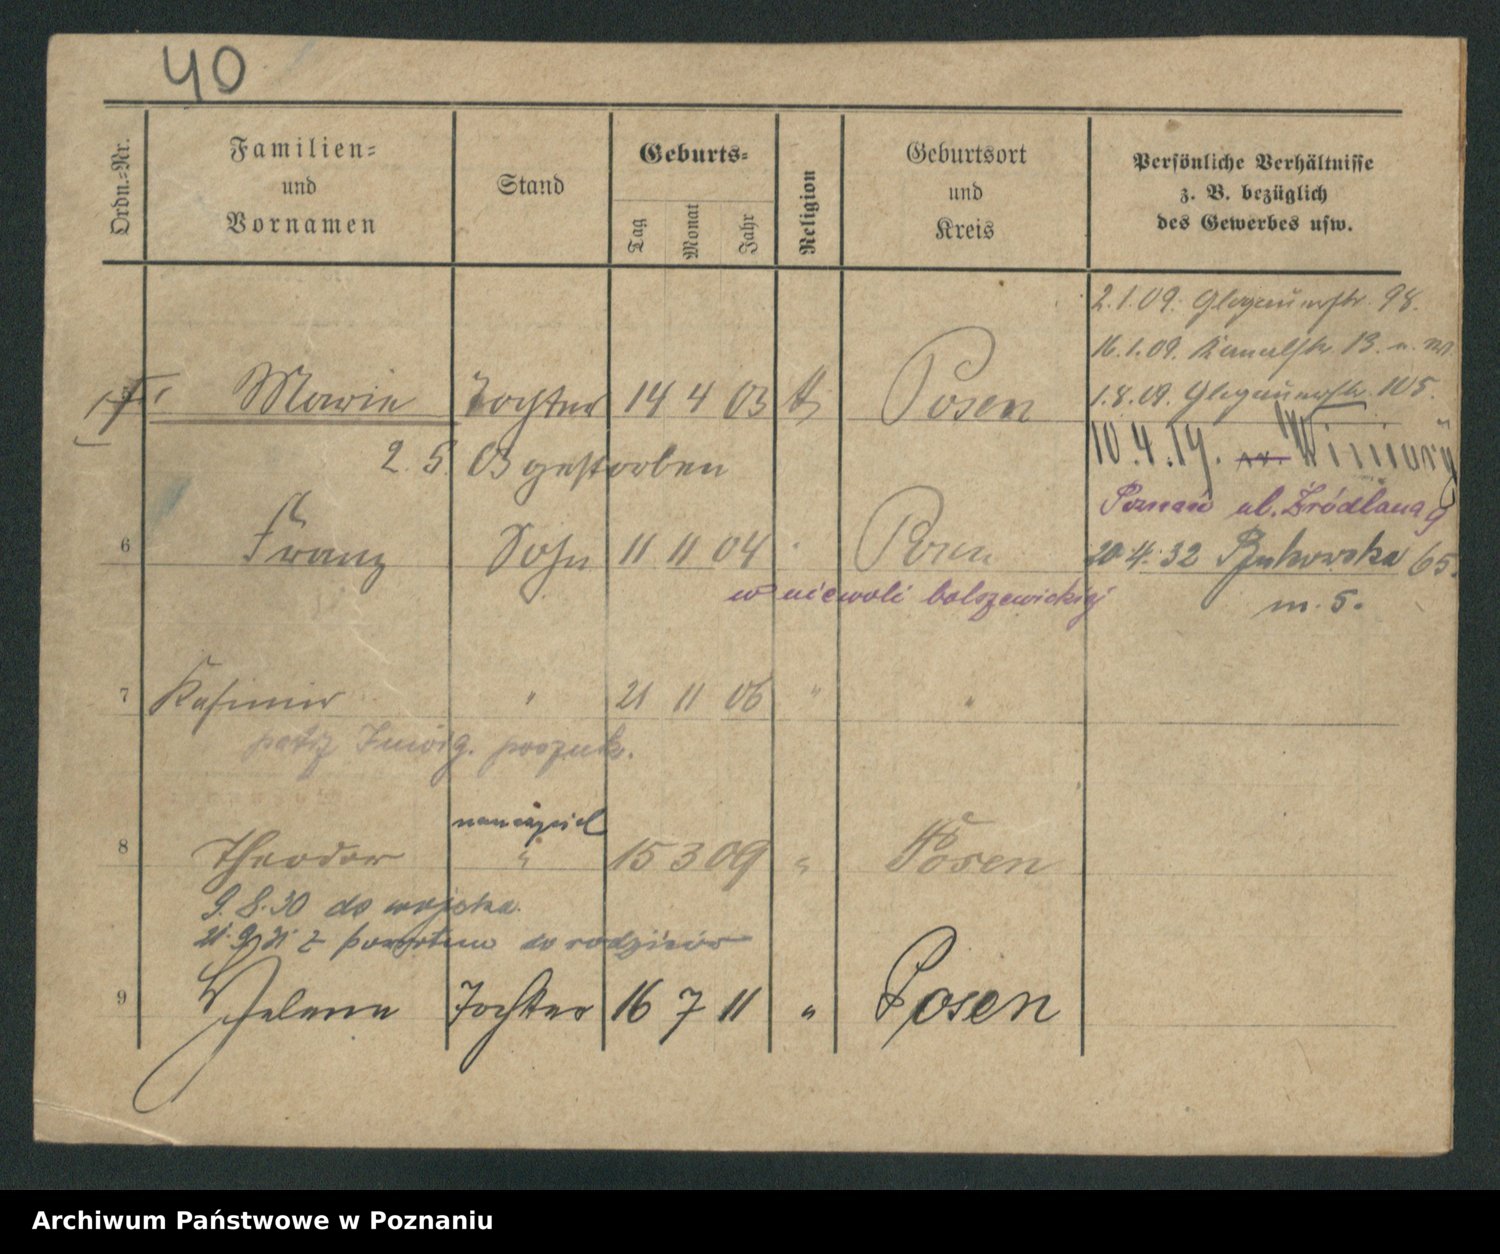 40
Ordn.-Nr.
Familien-
und
Vornamen
Stand
Geburts-
Tag
Monat
Jahr
Religion
Geburtsort
und
Kreis
Persönliche Verhältnisse
z. B. bezüglich
des Gewerbes usw.
2.1.09. Glogauerstr. 98.
16.1.09. Kanalstr. 13.
1.8.09. Glogauerstr. 105.
Marie Tochter 14 4 03 Posen
10.4.19. Winiary
2. 5. 03 gestorben
Poznań ul. Źródlana 9
6 Franz Sohn 11 11 04 Posen
20.4.32 Bukowska 65.
w niewoli bolszewickiej
m. 5.
7 Kasimir " 21 11 06 " "
nauczyciel
8 Theodor " 15 3 09 " Posen
9.8.30 do wojska.
z powrotem do rodziców
9 Helene Tochter 16 7 11 " Posen
Archiwum Państwowe w Poznaniu